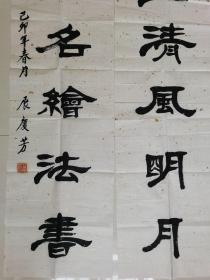 清風明月
名繪法書
己卯年春月 展廣芳